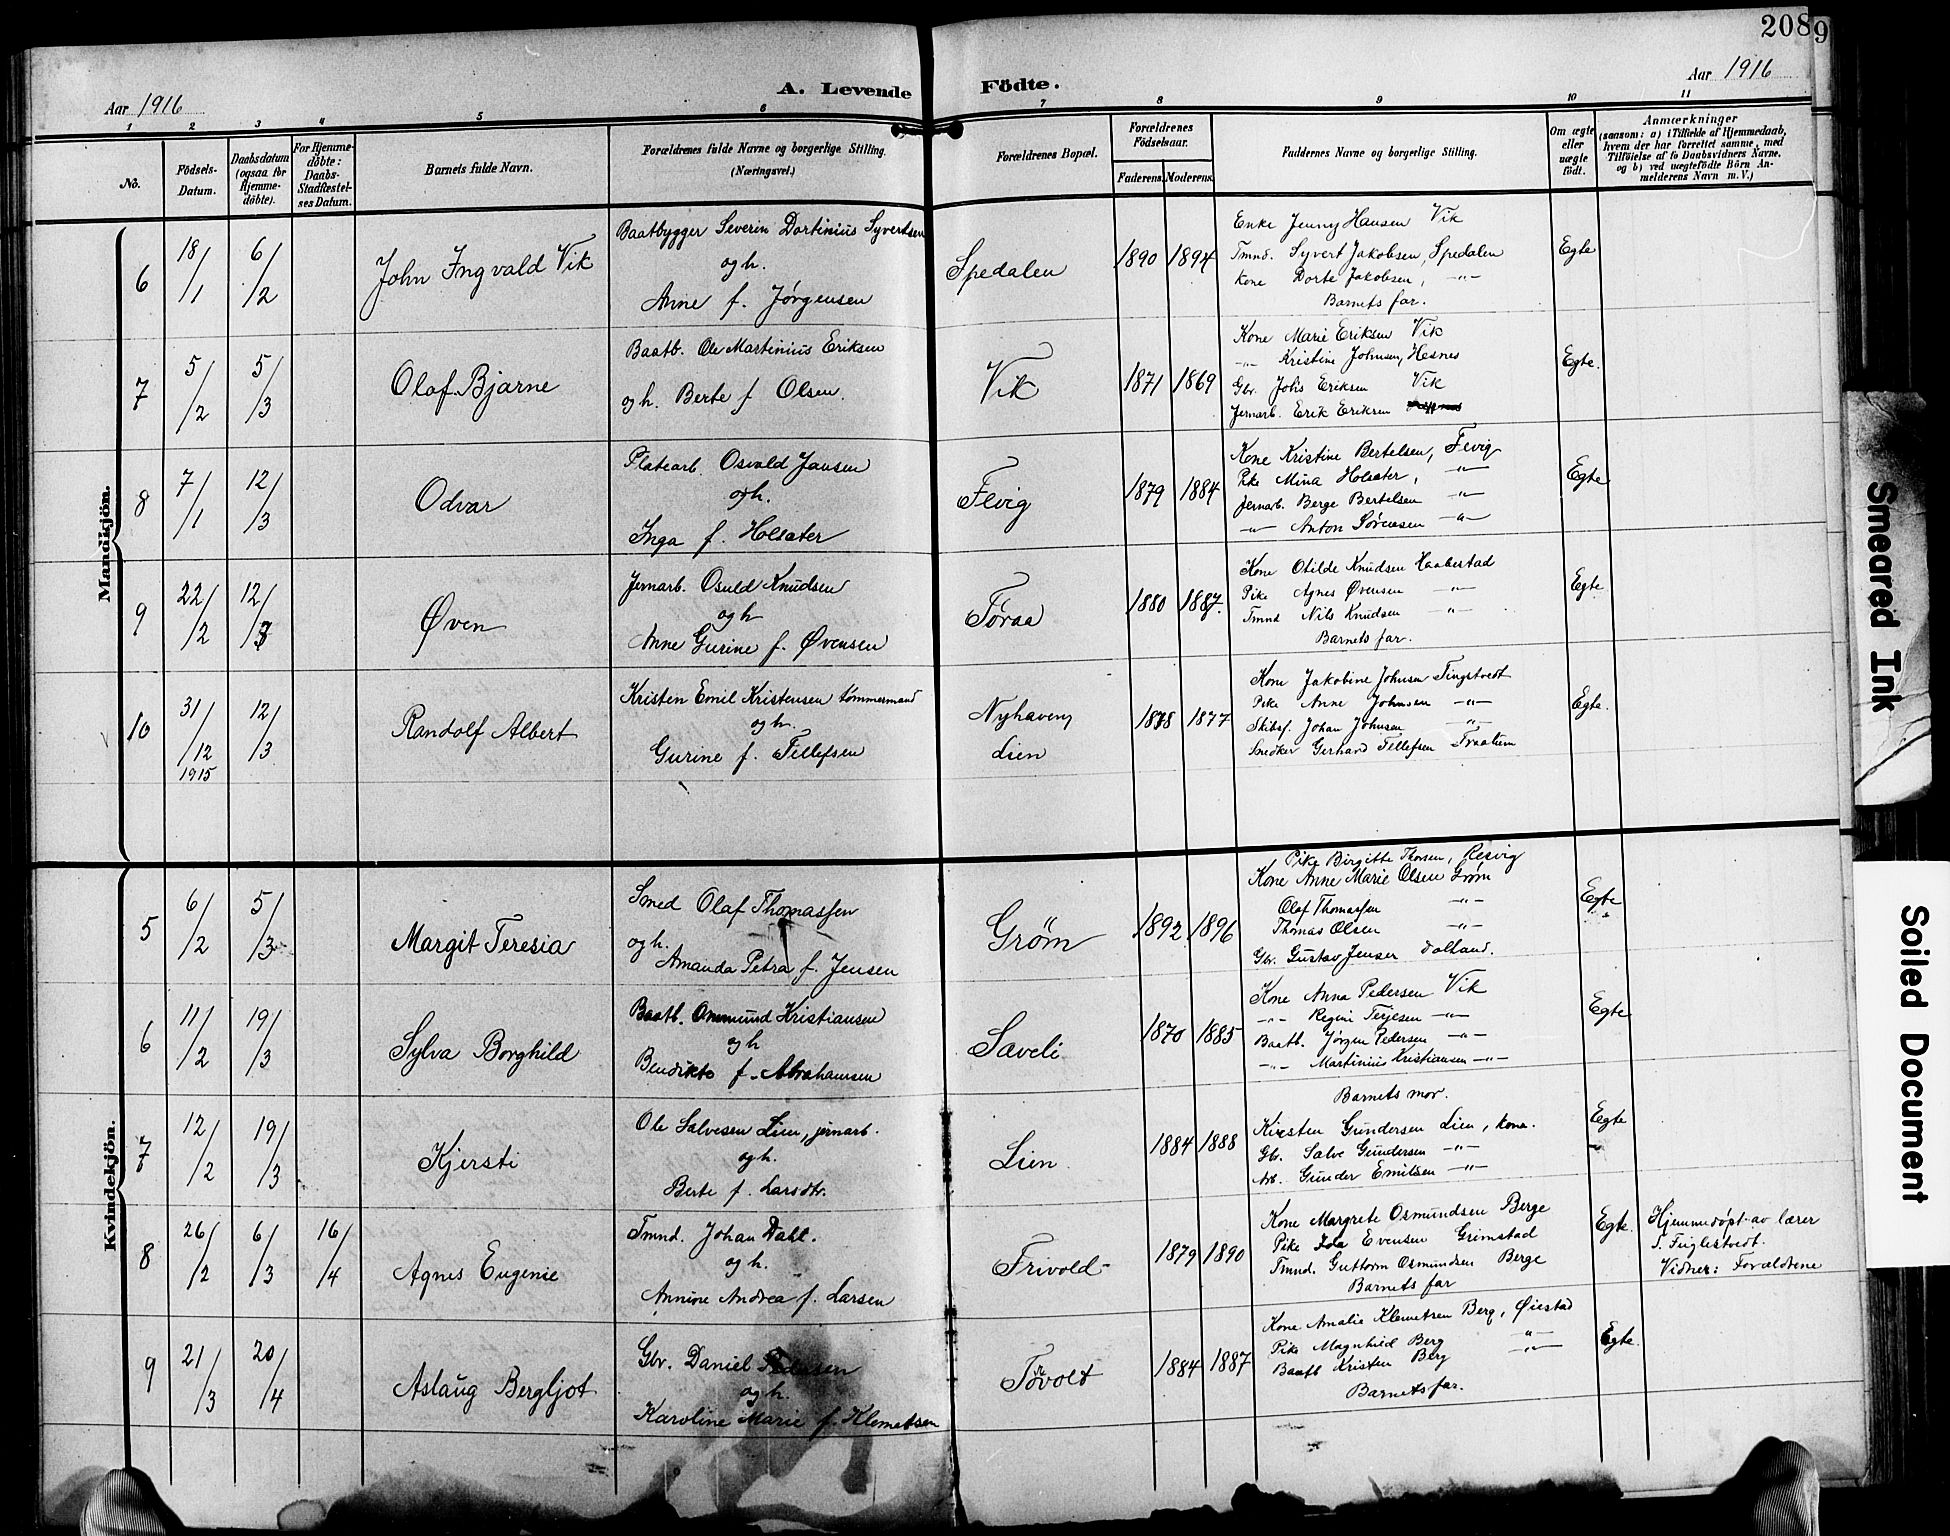 208 9
Aar 1916
A. Levende Födte.
Aar 1916
1 2 3 4 5 6 7 8 9 10 11
No.
Födsels-
Datum.
Daabsdatum
(ogsaa for
Hjemme-
döbte).
For Hjemme-
döbte:
Daabs-
Stadfæstel-
ses Datum.
Barnets fulde Navn.
Forældrenes fulde Navne og borgerlige Stilling.
(Næringsvei.)
Forældrenes Bopæl.
Forældrenes
Födselsaar.
Faderens. Moderens.
Faddernes Navne og borgerlige Stilling.
Om ægte
eller
uægte
födt.
Anmærkninger
(saasom: a) i Tilfælde af Hjemmedaab,
hvem der har forrettet samme, med
Tilföielse af to Daabsvidners Navne,
og b) ved uægtefödte Börn An-
melderens Navn m. V.)
Mandkjön.
6
18/1
6/2
John Ingvald Vik
Baatbygger Severin Dortinius Syvertsen
og h.
Anne f. Jørgensen
Spedalen
1890 1894
Enke Jenny Hansen Vik
Tmnd. Syvert Jakobsen, Spedalen
Kone Dorte Jakobsen, -"-
Barnets far.
Egte
7
5/2
5/3
Olaf Bjarne
Baatb. Ole Martinius Eriksen
og h. Berte f Olsen.
Vik
1871 1869
Kone Marie Eriksen Vik
-"- Kristine Johnsen, Hesnes
Gbr. Johs Eriksen Vik
Jernarb. Erik Eriksen
Egte.
8
7/1
12/3
Odvar
Platearb. Osvald Jansen
og h.
Inga f. Holsater
Flvig
1879 1884
Kone Kristine Bertelsen, Flvig
Pike Mina Holsater, -"-
Jernarb. Berge Bertelsen -"-
-"- Anton Sørensen -"-
Egte
9
22/2
12/3
Øven
Jernarb. Osuld Knudsen
og h
Anne Gurine f. Øvensen
Tøraa
1880 1887.
Kone Otilde Knudsen Haabestad
Pike Agnes Øvensen -"-
Tmnd Nils Knudsen -"-
Barnets far.
Egte
10
31/12
1915
12/3
Randolf Albert
Kristen Emil Kristensen tømmermand
og h.
Gurine f. Tellefsen
Nyhaven
Lien
1878 1877
Kone Jakobine Johnsen Tingstvedt
Pike Anne Johnsen -"-
Skibsf. Johan Johnsen -"-
Snedker Gerhard Tellefsen
Egte.
Kvindekjön.
5
6/2
5/3
Margit Teresia
Smed Olaf Thomassen
og h.
Amanda Petra f. Jensen
Grøm
1892. 1896
Pike Birgitte Thorsen, Resvig
Kone Anne Marie Olsen Grøm
Olaf Thomassen -"-
Thomas Olsen -"-
Gbr. Gustav Jensen Dalland.
Egte
6
11/2
19/3
Sylva Borghild
Baatb. Ommund Kristiansen
og h
Bendikte f. Abrahamsen
Saveli
1870 1885
Kone Anna Pedersen Vik
-"- Regine Terjesen -"-
Baatb. Jørgen Pedersen -"-
-"- Martinius Kristiansen -"-
Egte
7
12/2
19/3
Kjersti
Ole Salvesen Lien, jernarb.
og h.
Berte f. Larsdtr.
Lien
1884 1888
Barnets mor.
Kirsten Gundersen Lien, kone.
Gbr. Salve Gundersen -"-
Arb. Gunder Emilsen -"-
Egte
8
26/2
6/3
16/4
Agnes Eugenie
Tmnd. Johan Dahl.
og h.
Annine Andrea f. Larsen
Frivold
1879 1890
Kone Margrete Osmundsen Berge
Pike Ida Evensen Grimstad
Tmnd. Guttorm Osmundsen Berge
Barnets far
Egte.
Hjemmedøpt av lærer
S. Fuglestvedt.
Vidner: Forældrene
9
21/3
20/4
Aslaug Bergljot
Gbr. Daniel Pedersen
og h.
Karoline Marie f. Klemetsen
Tøvolt
1884 1887
Kone Amalie Klemetsen Berg, Øiestad
Pike Magnhild Berg -"-
Baatb Kristen Berg -"-
Barnets far.
Egte.
Smeared Ink
Soiled Document